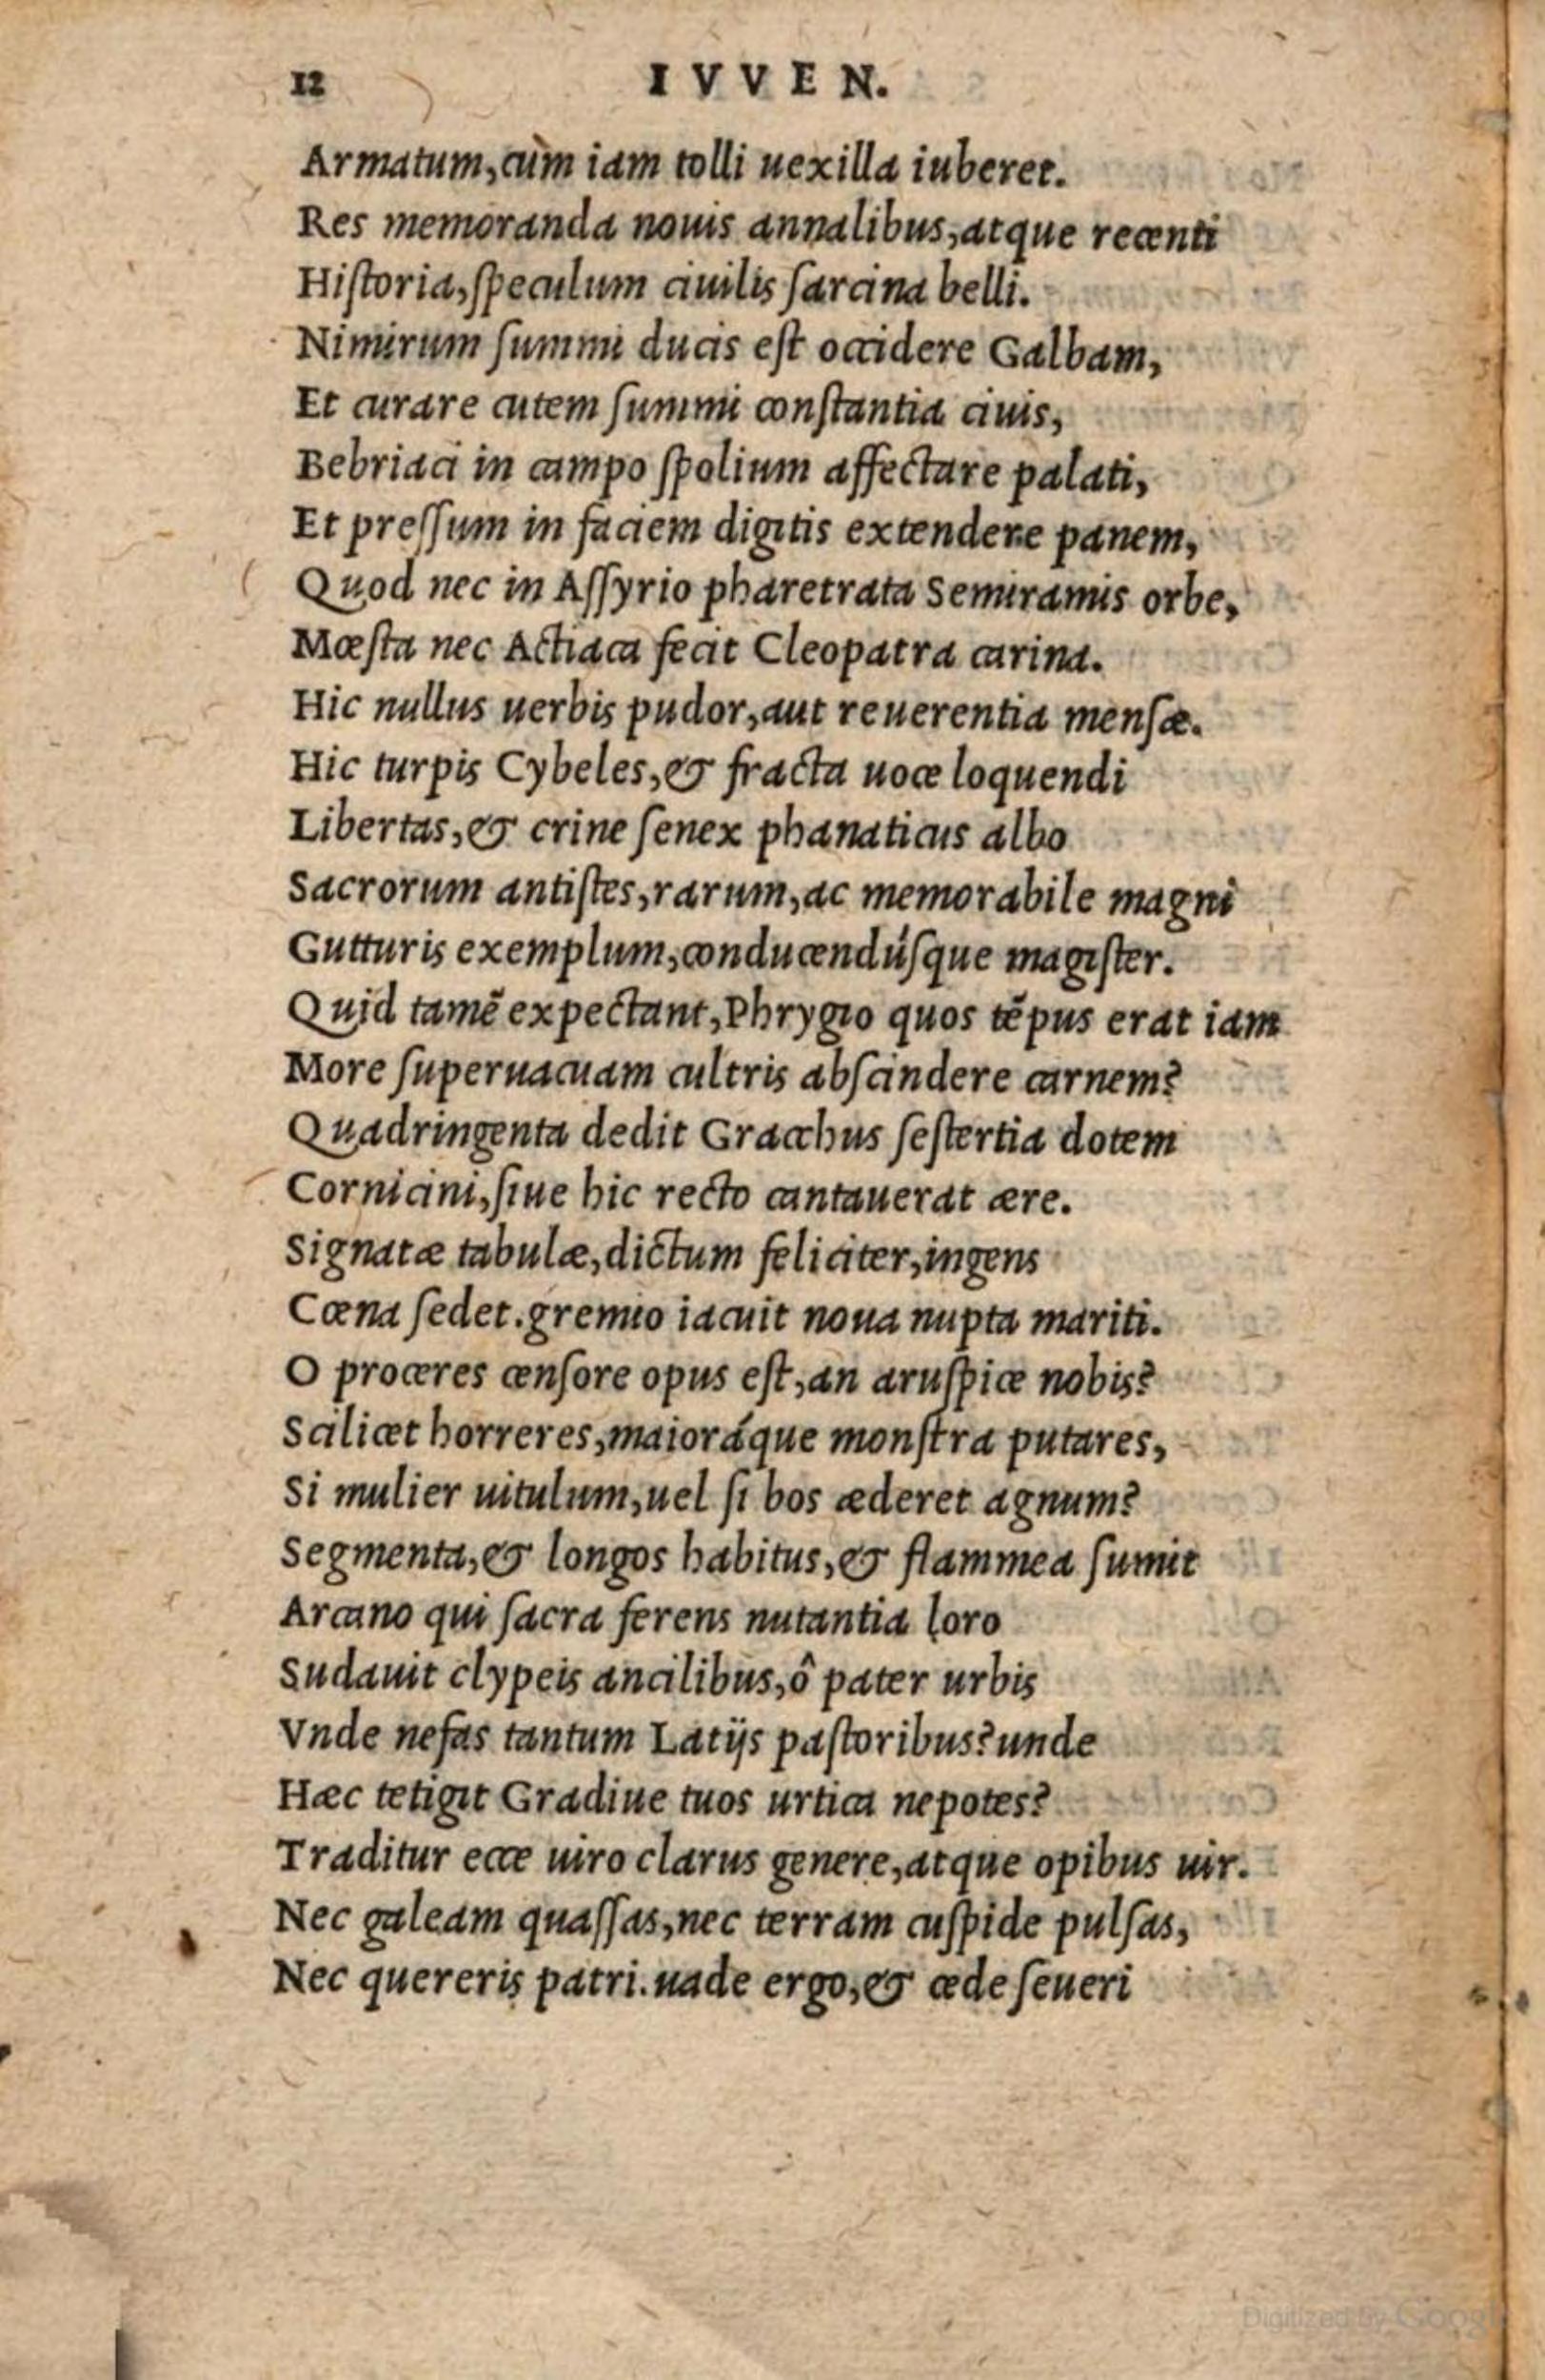 12 IVVEN.
Armatum, cùm iam tolli uexilla iuberet.
Res memoranda nouis annalibus, atque recenti
Hiſtoria, ſpeculum ciuilis ſarcina belli.
Nimirum ſummi ducis eſt occidere Galbam,
Et curare cutem ſummi conſtantia ciuis,
Bebriaci in campo ſpolium affectare palati,
Et preſſum in faciem digitis extendere panem,
Quod nec in Aſſyrio pharetrata Semiramis orbe,
Mœſta nec Actiaca fecit Cleopatra carina.
Hic nullus uerbis pudor, aut reuerentia menſæ.
Hic turpis Cybeles, & fracta uoce loquendi
Libertas, & crine ſenex phanaticus albo
Sacrorum antiſtes, rarum, ac memorabile magni
Gutturis exemplum, conducendúſque magiſter.
Quid tamẽ expectant, Phrygio quos tẽpus erat iam
More ſuperuacuam cultris abſcindere carnem?
Quadringenta dedit Gracchus ſeſtertia dotem
Cornicini, ſiue hic recto cantauerat ære.
Signatæ tabulæ, dictum feliciter, ingens
Cœna ſedet. gremio iacuit noua nupta mariti.
O proceres cenſore opus eſt, an aruſpice nobis?
Scilicet horreres, maioráque monſtra putares,
Si mulier uitulum, uel ſi bos æderet agnum?
Segmenta, & longos habitus, & flammea ſumit
Arcano qui ſacra ferens nutantia loro
Sudauit clypeis ancilibus, ô pater urbis
Vnde nefas tantum Latijs paſtoribus? unde
Hæc tetigit Gradiue tuos urtica nepotes?
Traditur ecce uiro clarus genere, atque opibus uir.
Nec galeam quaſſas, nec terram cuſpide pulſas,
Nec quereris patri. uade ergo, & cede ſeueri
Digitized by Google